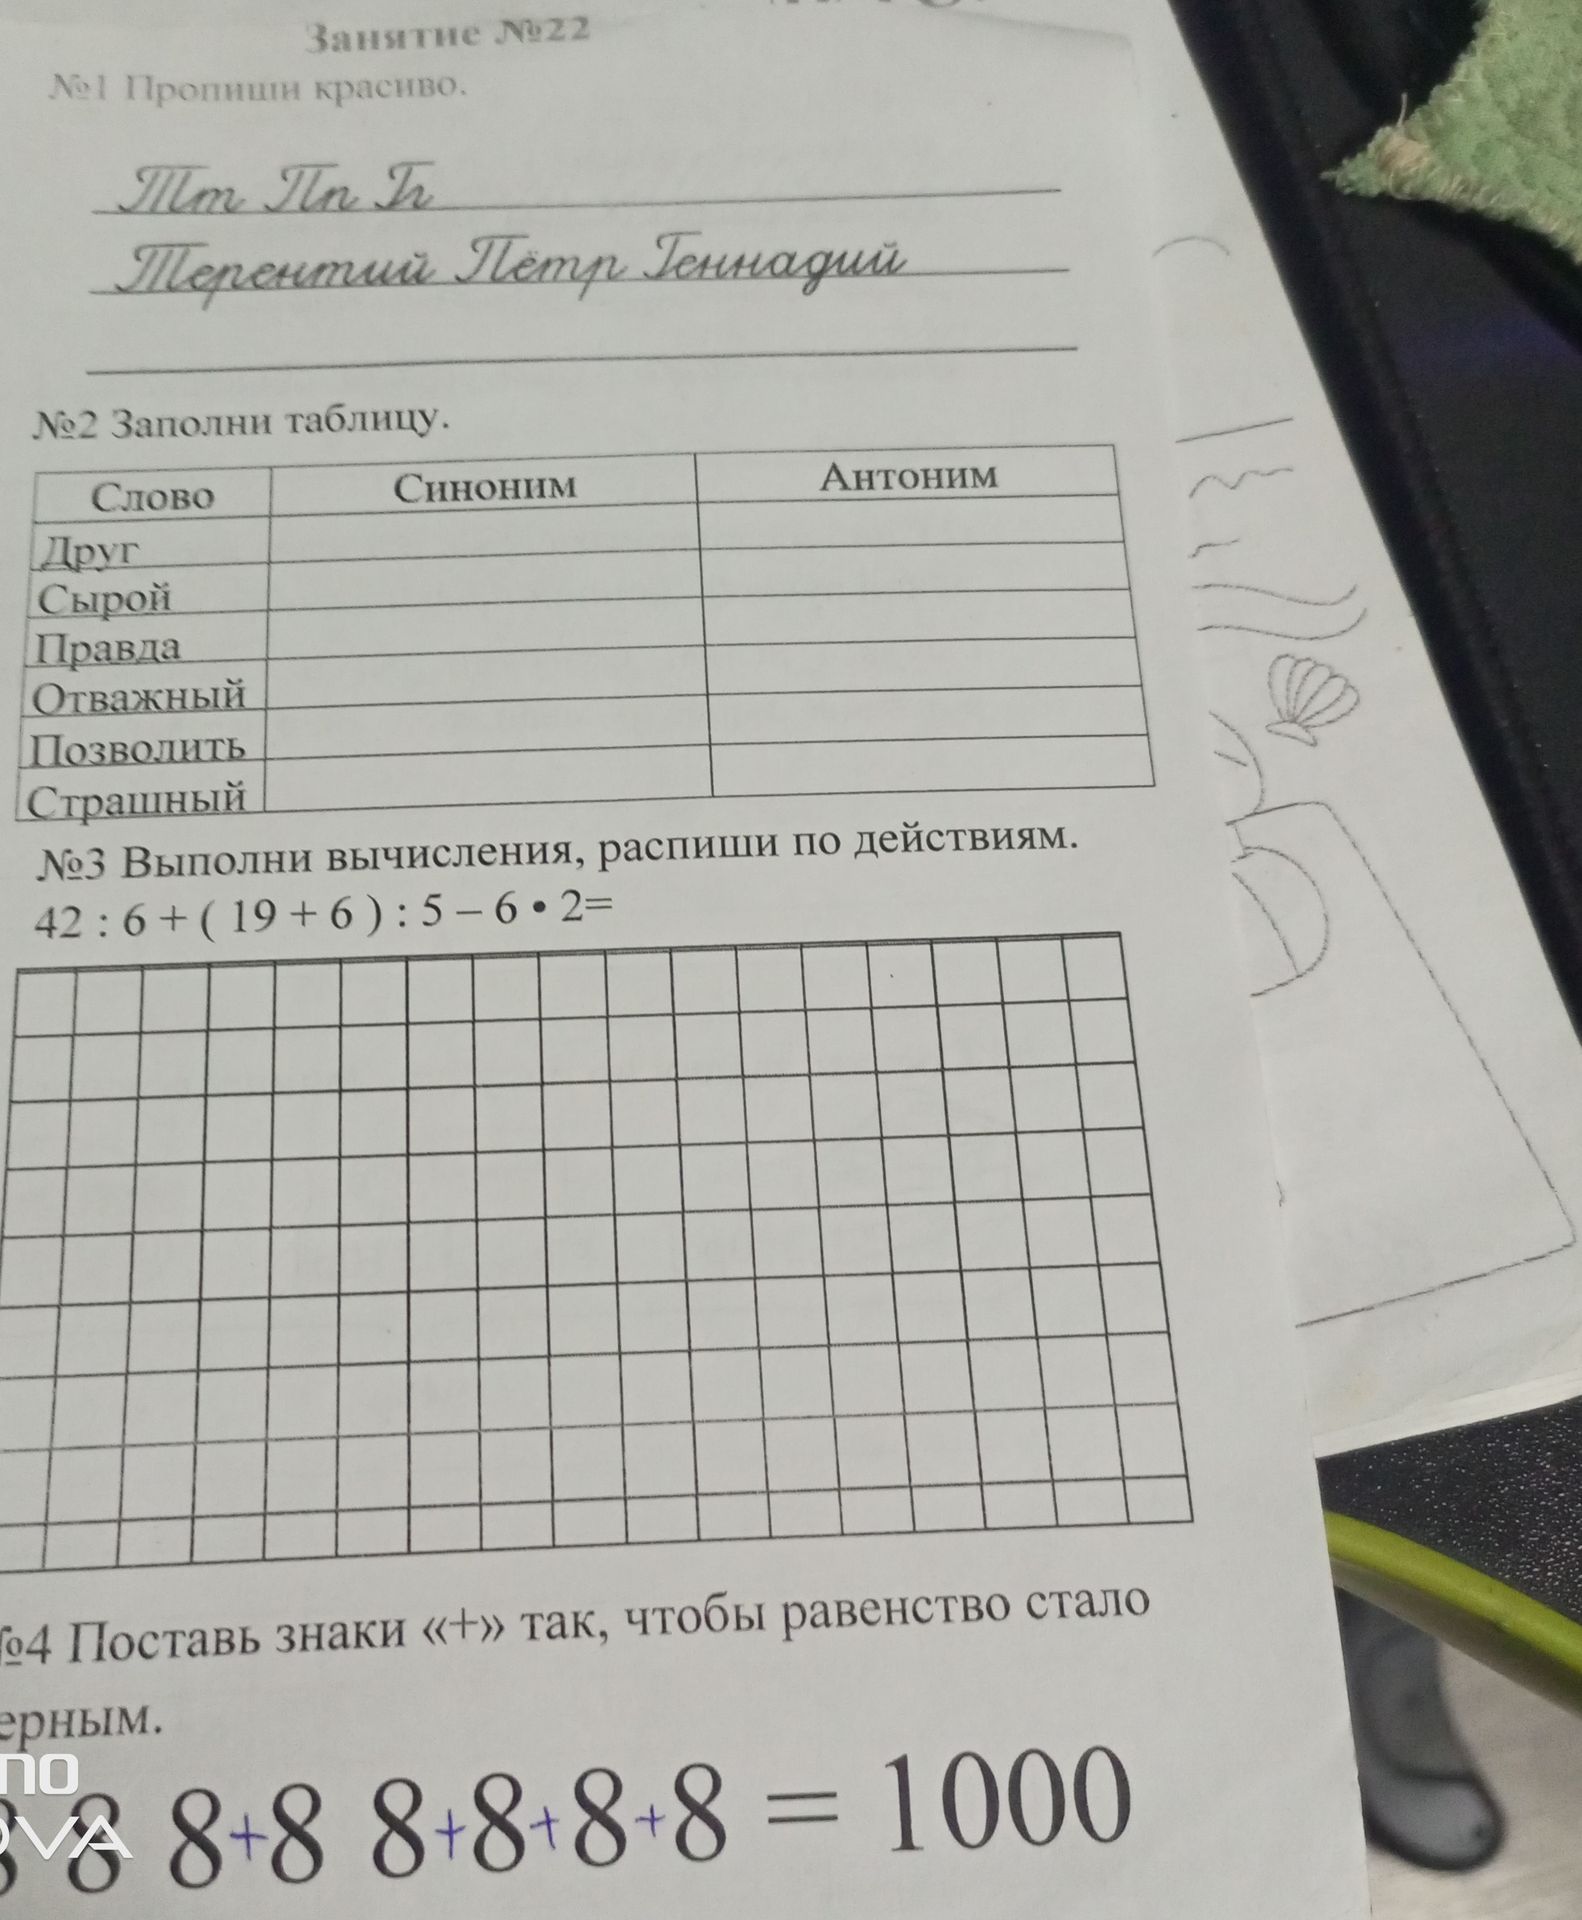 Занятие №22
№1 Пропиши красиво.
Тт Пп Гг
Терентий Пётр Геннадий
№2 Заполни таблицу.
Слово Синоним Антоним
Друг
Сырой
Правда
Отважный
Позволить
Страшный
№3 Выполни вычисления, распиши по действиям.
42 : 6 + ( 19 + 6 ) : 5 – 6 • 2=
№4 Поставь знаки «+» так, чтобы равенство стало
ерным.
8 8 8+8 8+8+8+8 = 1000
no
OVA